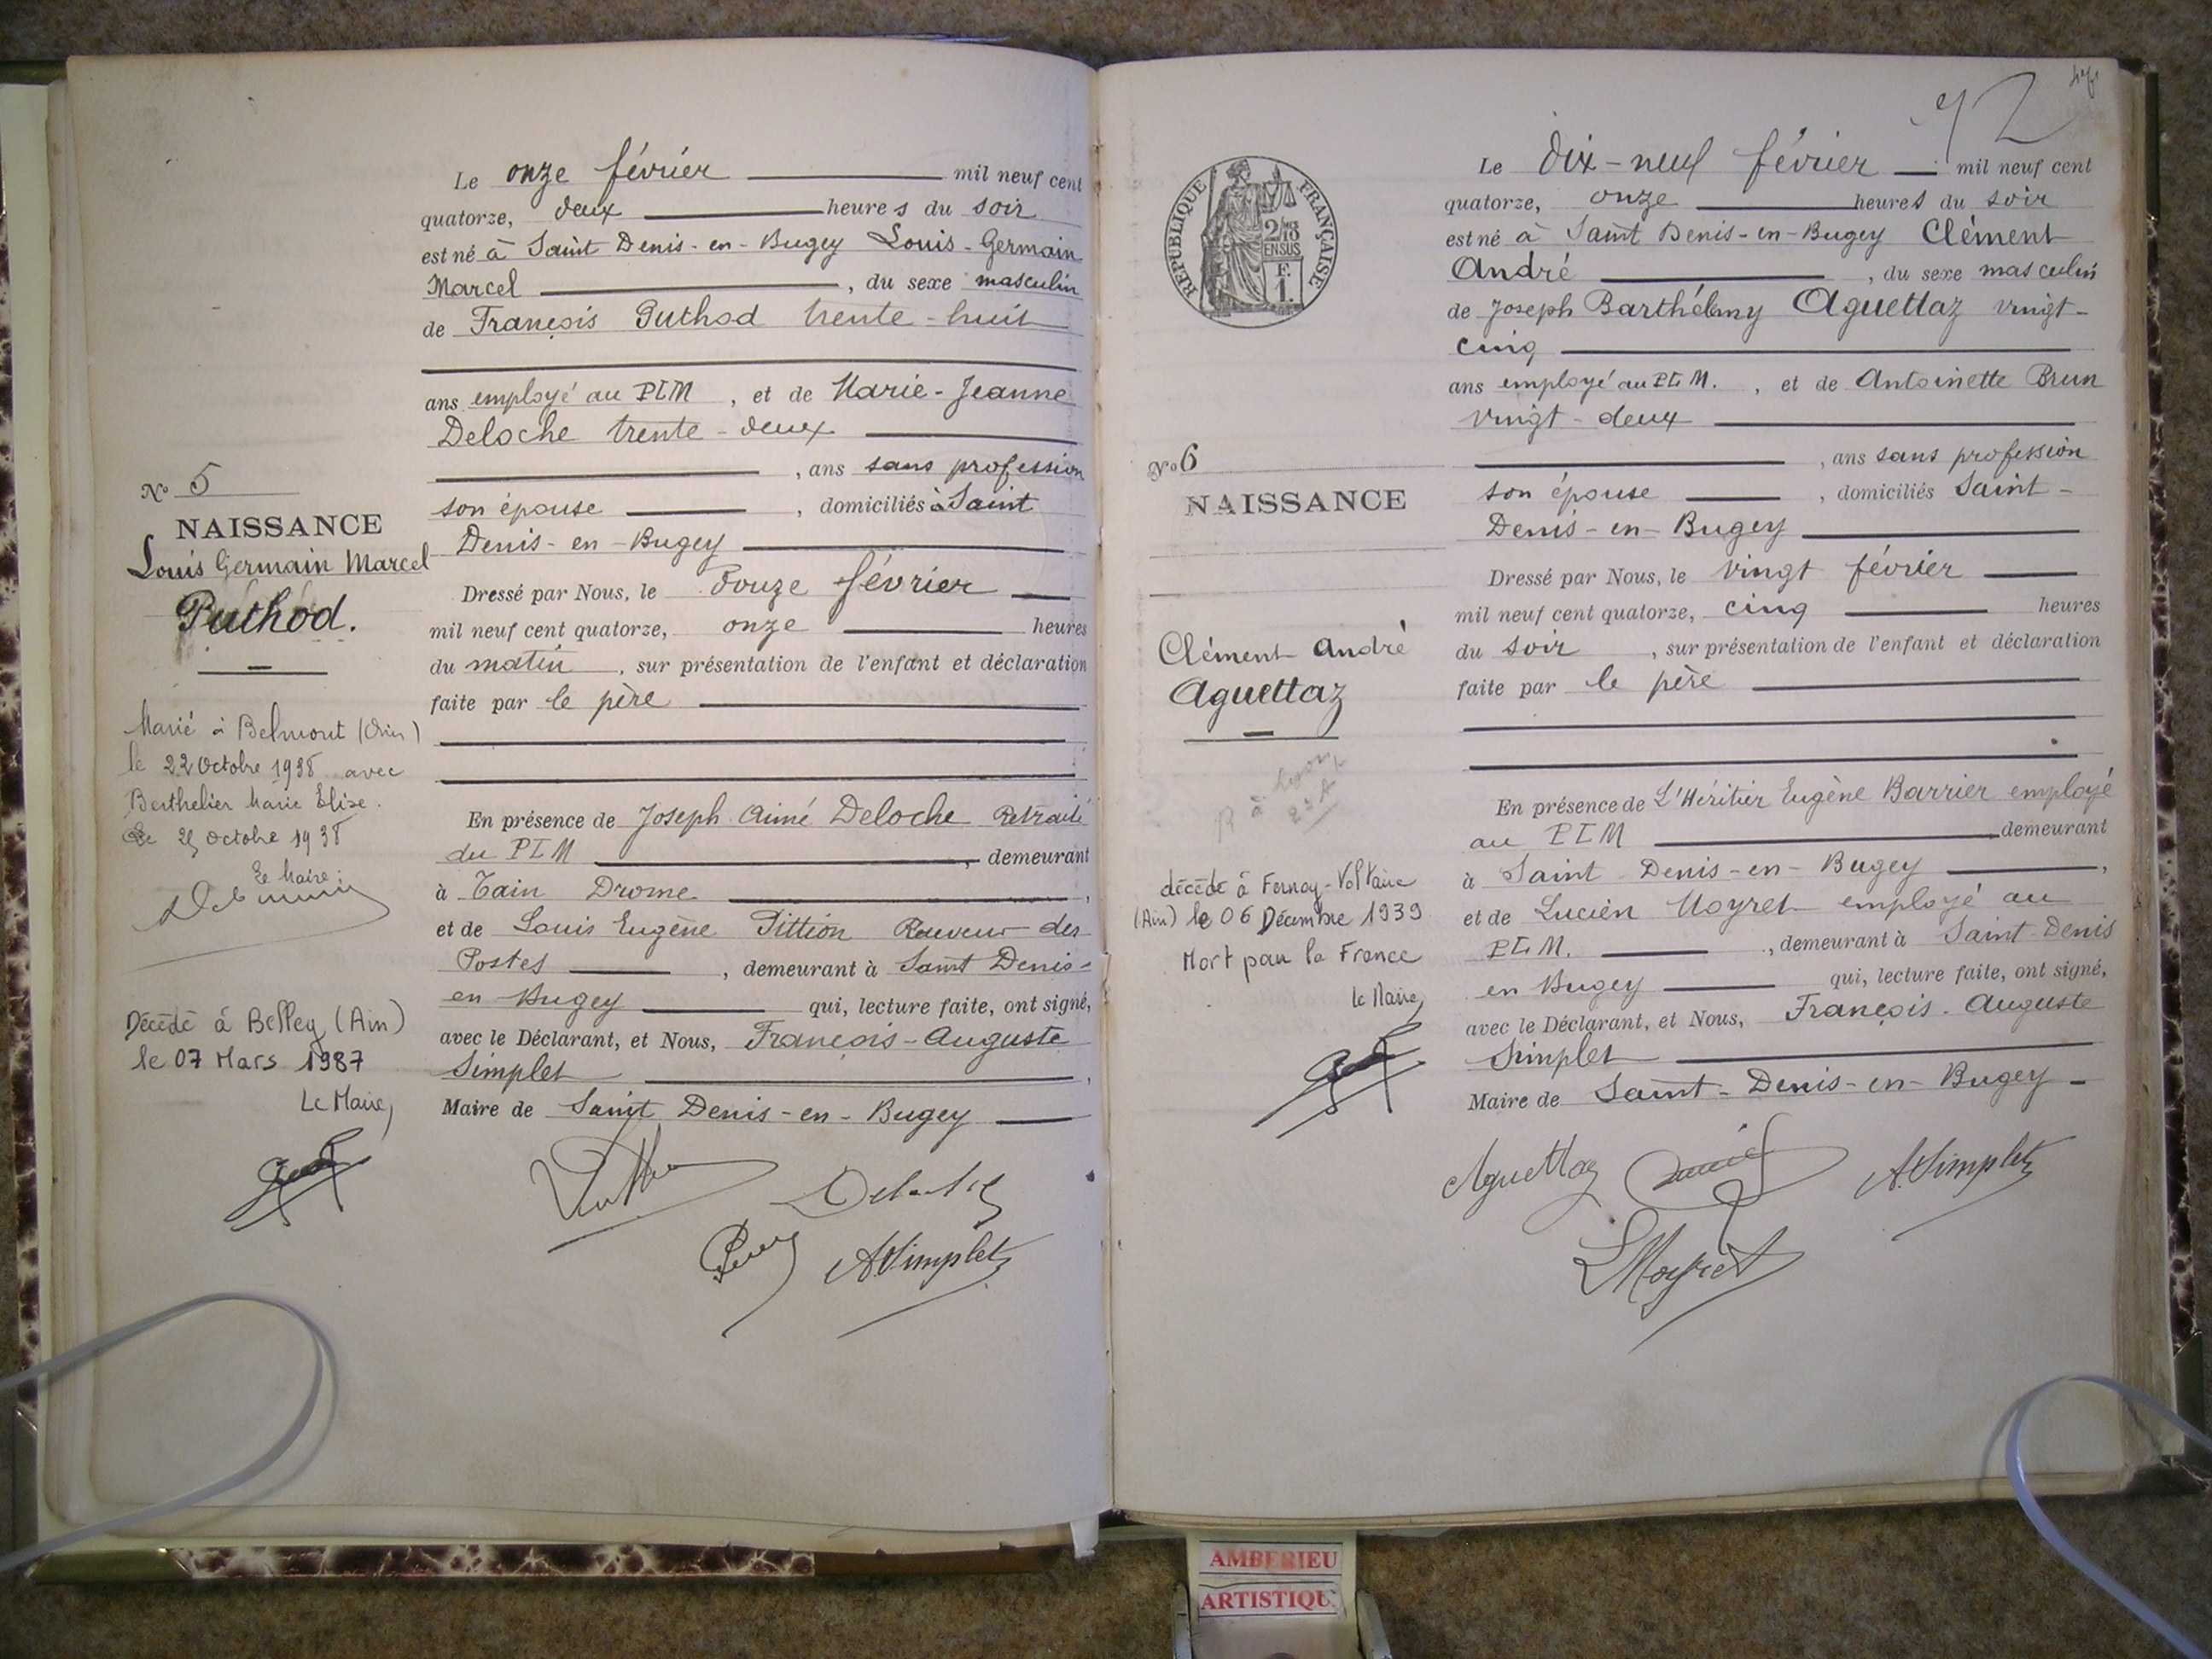 Le onze février mil neuf cent
quatorze, deux heures du soir
est né à Saint Denis-en-Bugey Louis-Germain
Marcel, du sexe masculin
de François Puthod trente-huit
ans employé au PLM, et de Marie-Jeanne
Deloche trente-deux
, ans sans profession
son épouse, domiciliés à Saint
Denis-en-Bugey
Dressé par Nous, le douze février
mil neuf cent quatorze, onze heures
du matin, sur présentation de l'enfant et déclaration
faite par le père
En présence de Joseph Aimé Deloche Retraité
du PLM, demeurant
à Tain Drome,
et de Louis Eugène Pittion Receveur des
Postes, demeurant à Saint Denis-
en-Bugey qui, lecture faite, ont signé,
avec le Déclarant, et Nous, François-Auguste
Simplet,
Maire de Saint Denis-en-Bugey
ASimplet
N° 5
NAISSANCE
Louis Germain Marcel
Puthod.
Marié à Belmont (Ain)
le 22 Octobre 1938 avec
Berthelier Marie Elise.
Le 25 octobre 1938
Le Maire:
Décédé à Belley (Ain)
le 07 Mars 1987
Le Maire,
92
RÉPUBLIQUE FRANÇAISE
2/10
EN SUS
F.
1.
Le dix-neuf février mil neuf cent
quatorze, onze heures du soir
est né à Saint Denis-en-Bugey Clément
André, du sexe masculin
de Joseph Barthélmy Aguettaz vingt-
cinq
ans employé au PLM., et de Antoinette Brun
vingt-deux
, ans sans profession
son épouse, domiciliés Saint-
Denis-en-Bugey
Dressé par Nous, le vingt février
mil neuf cent quatorze, cinq heures
du soir, sur présentation de l'enfant et déclaration
faite par le père
En présence de L'Héritier Eugène Barrier employé
au PLM demeurant
à Saint Denis-en-Bugey,
et de Lucien Moyret employé au
PLM., demeurant à Saint-Denis
en Bugey qui, lecture faite, ont signé,
avec le Déclarant, et Nous, François-Auguste
Simplet
Maire de Saint-Denis-en-Bugey
Aguettaz ASimplet
LMoyret
N° 6
NAISSANCE
Clément André
Aguettaz
R à Lyon
décédé à Ferney-Voltaire
(Ain) le 06 Décembre 1939
Mort pour la France
Le Maire,
AMBERIEU
ARTISTIQU